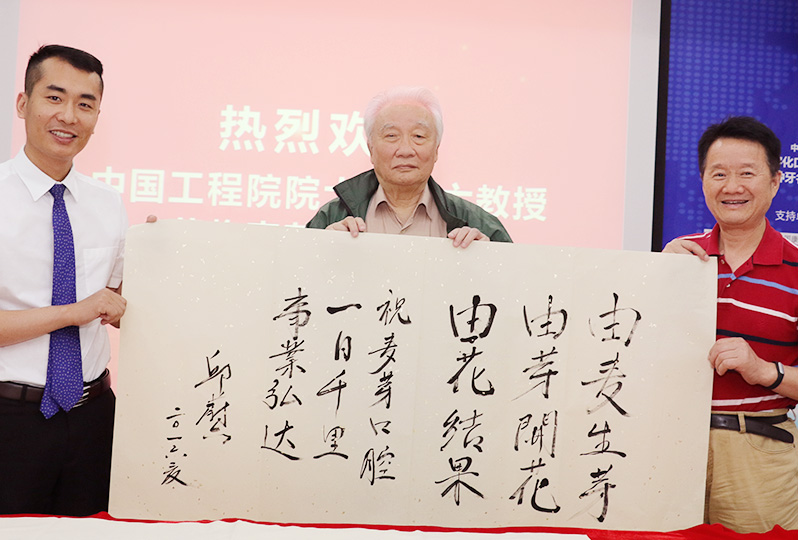 热烈欢
中国工程院院
教授
支持
由麦生芽
由芽開花
由花结果
祝麦芽口腔
一日千里
業弘达
邱蔚六
二〇一六夏